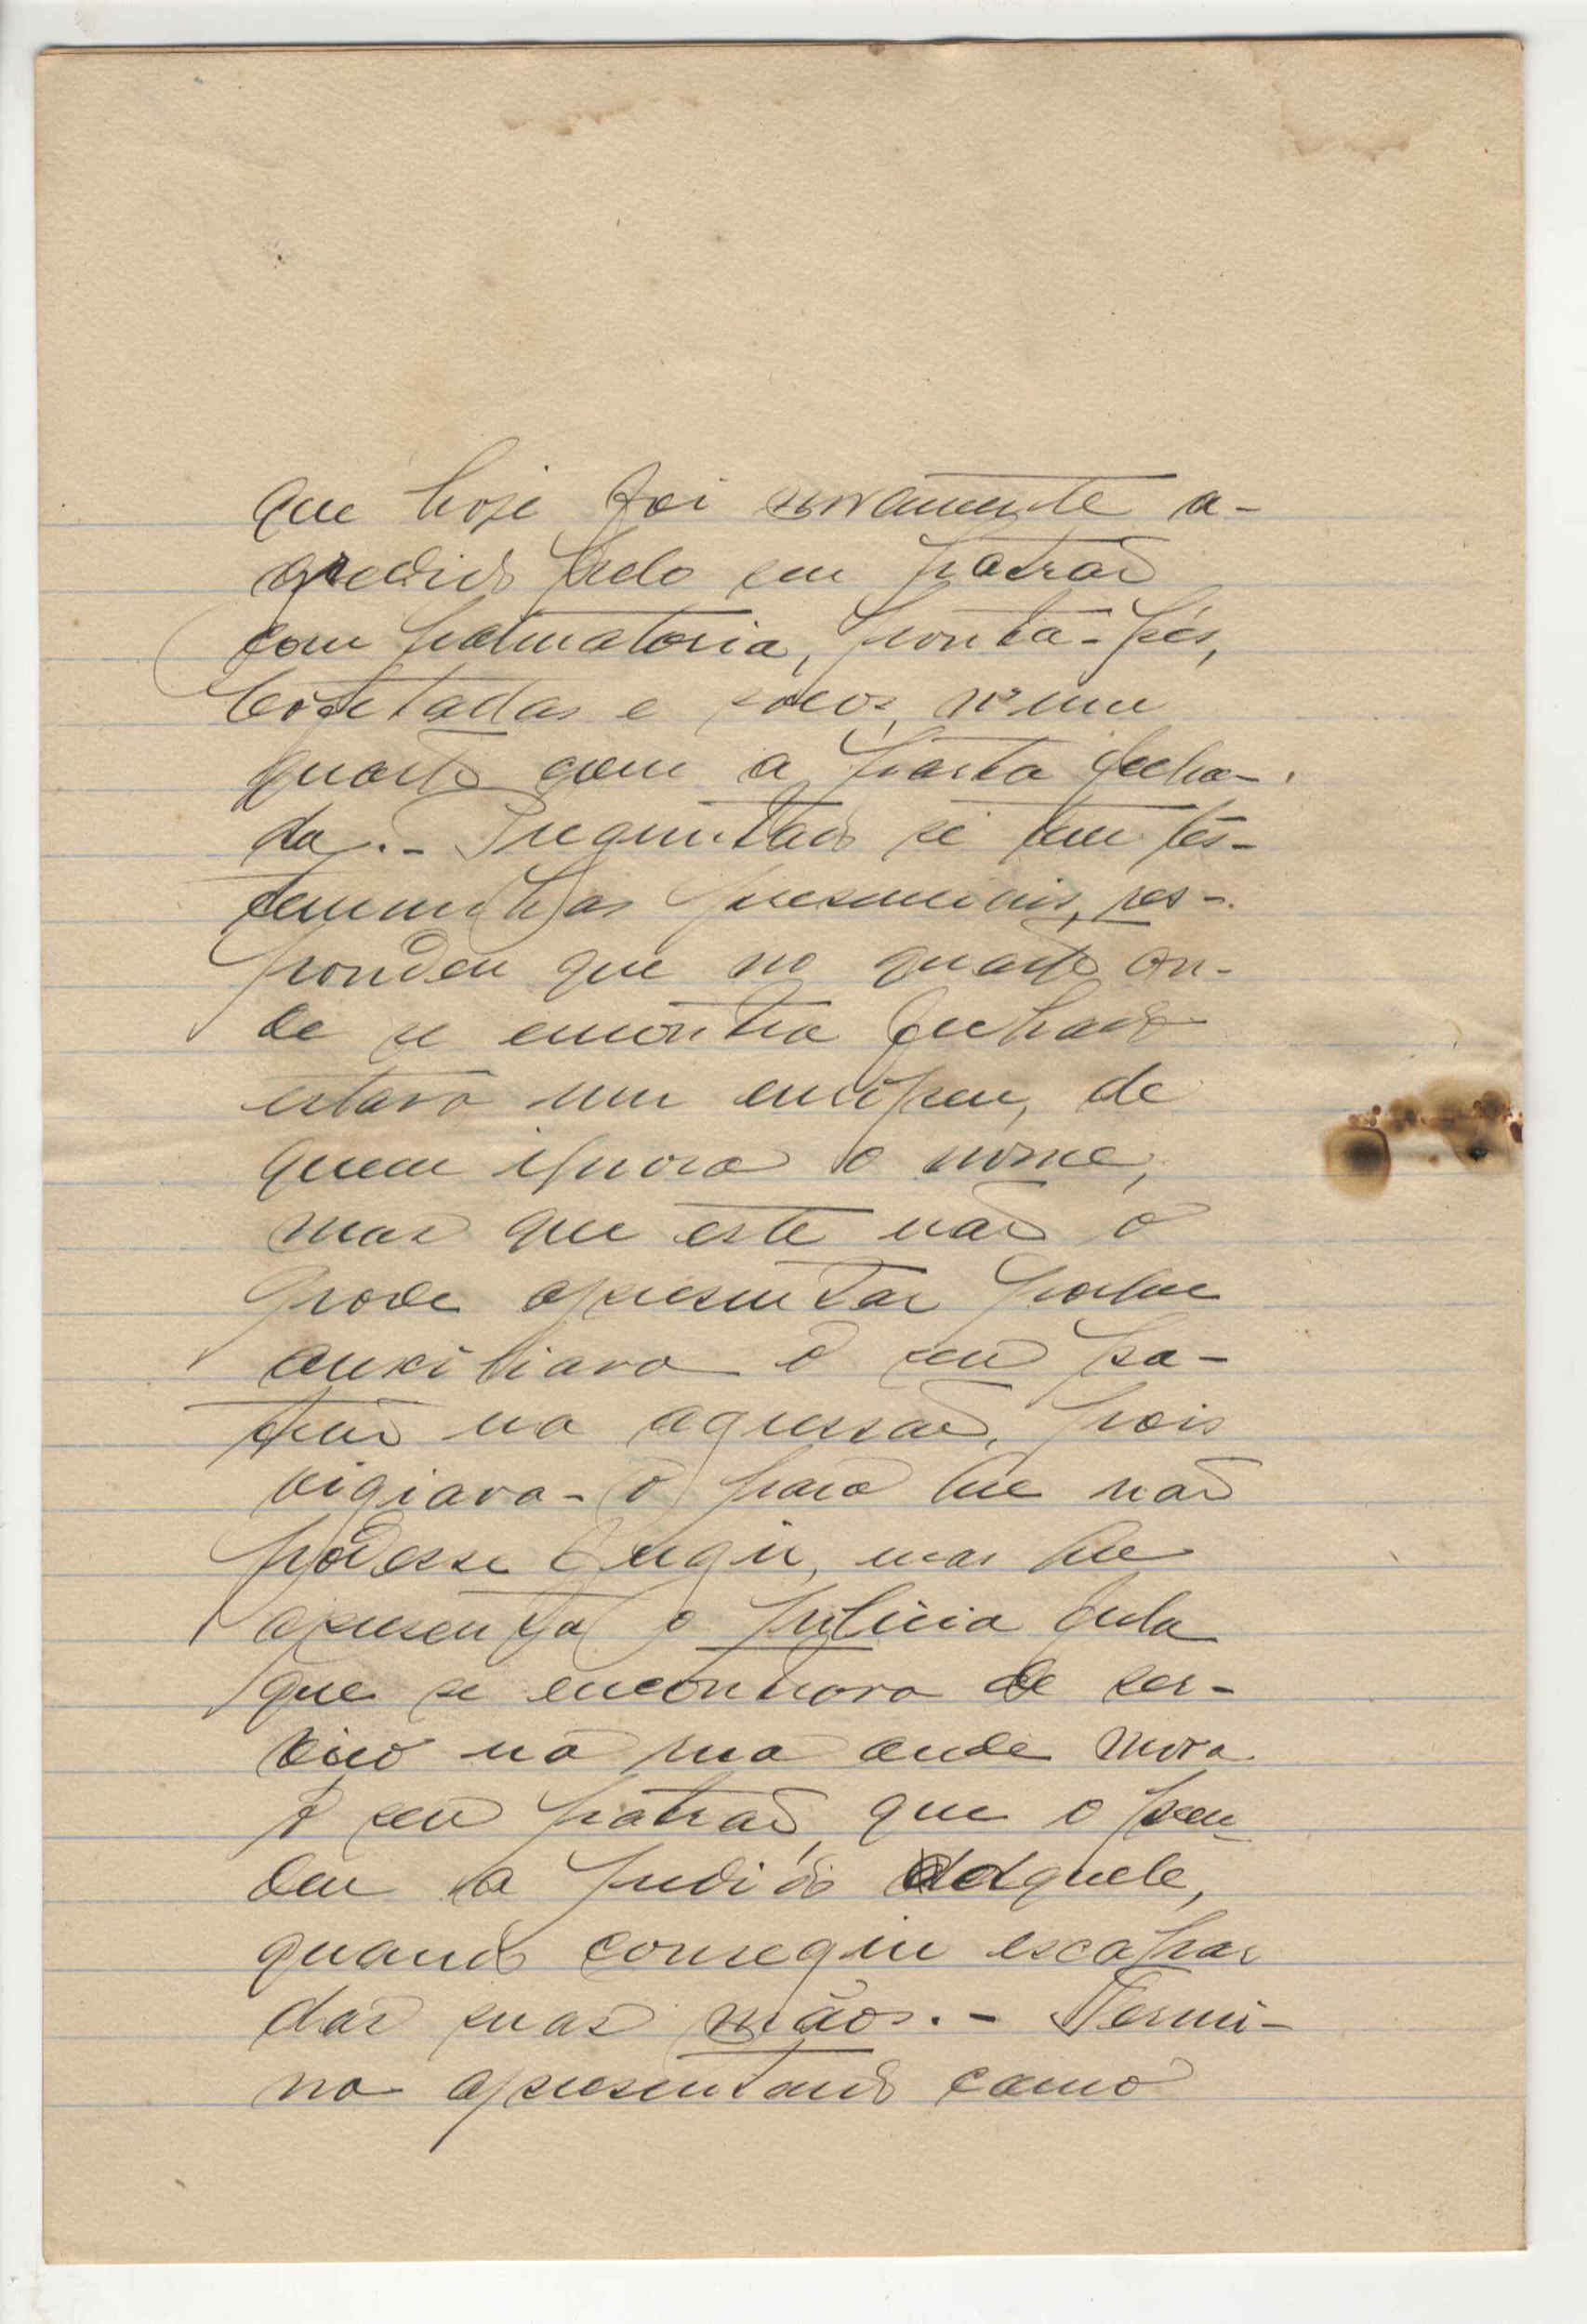 que hoje foi novamente a-
gredido pelo seu patrão
com palmatoria, ponta-pés,
bofetadas e socos, n'um
quarto com a porta fecha-
da.- Preguntado si tem tes-
temunhas presenciais, res-
pondeu que no quarto on-
de se encontra fechado
estava um
quem ignora o nome,
mas que este não o
pode apresentar porque
auxiliava o seu pa-
trão na agressão, pois
vigiava-o para que não
podesse fugir, mas que
apresenta o policia
que se encontrava de ser-
viço na rua onde mora
o seu patrão, que o pren-
deu a pedido daquele,
quando conseguiu escapar
das suas mãos.- Termi-
na apresentando como